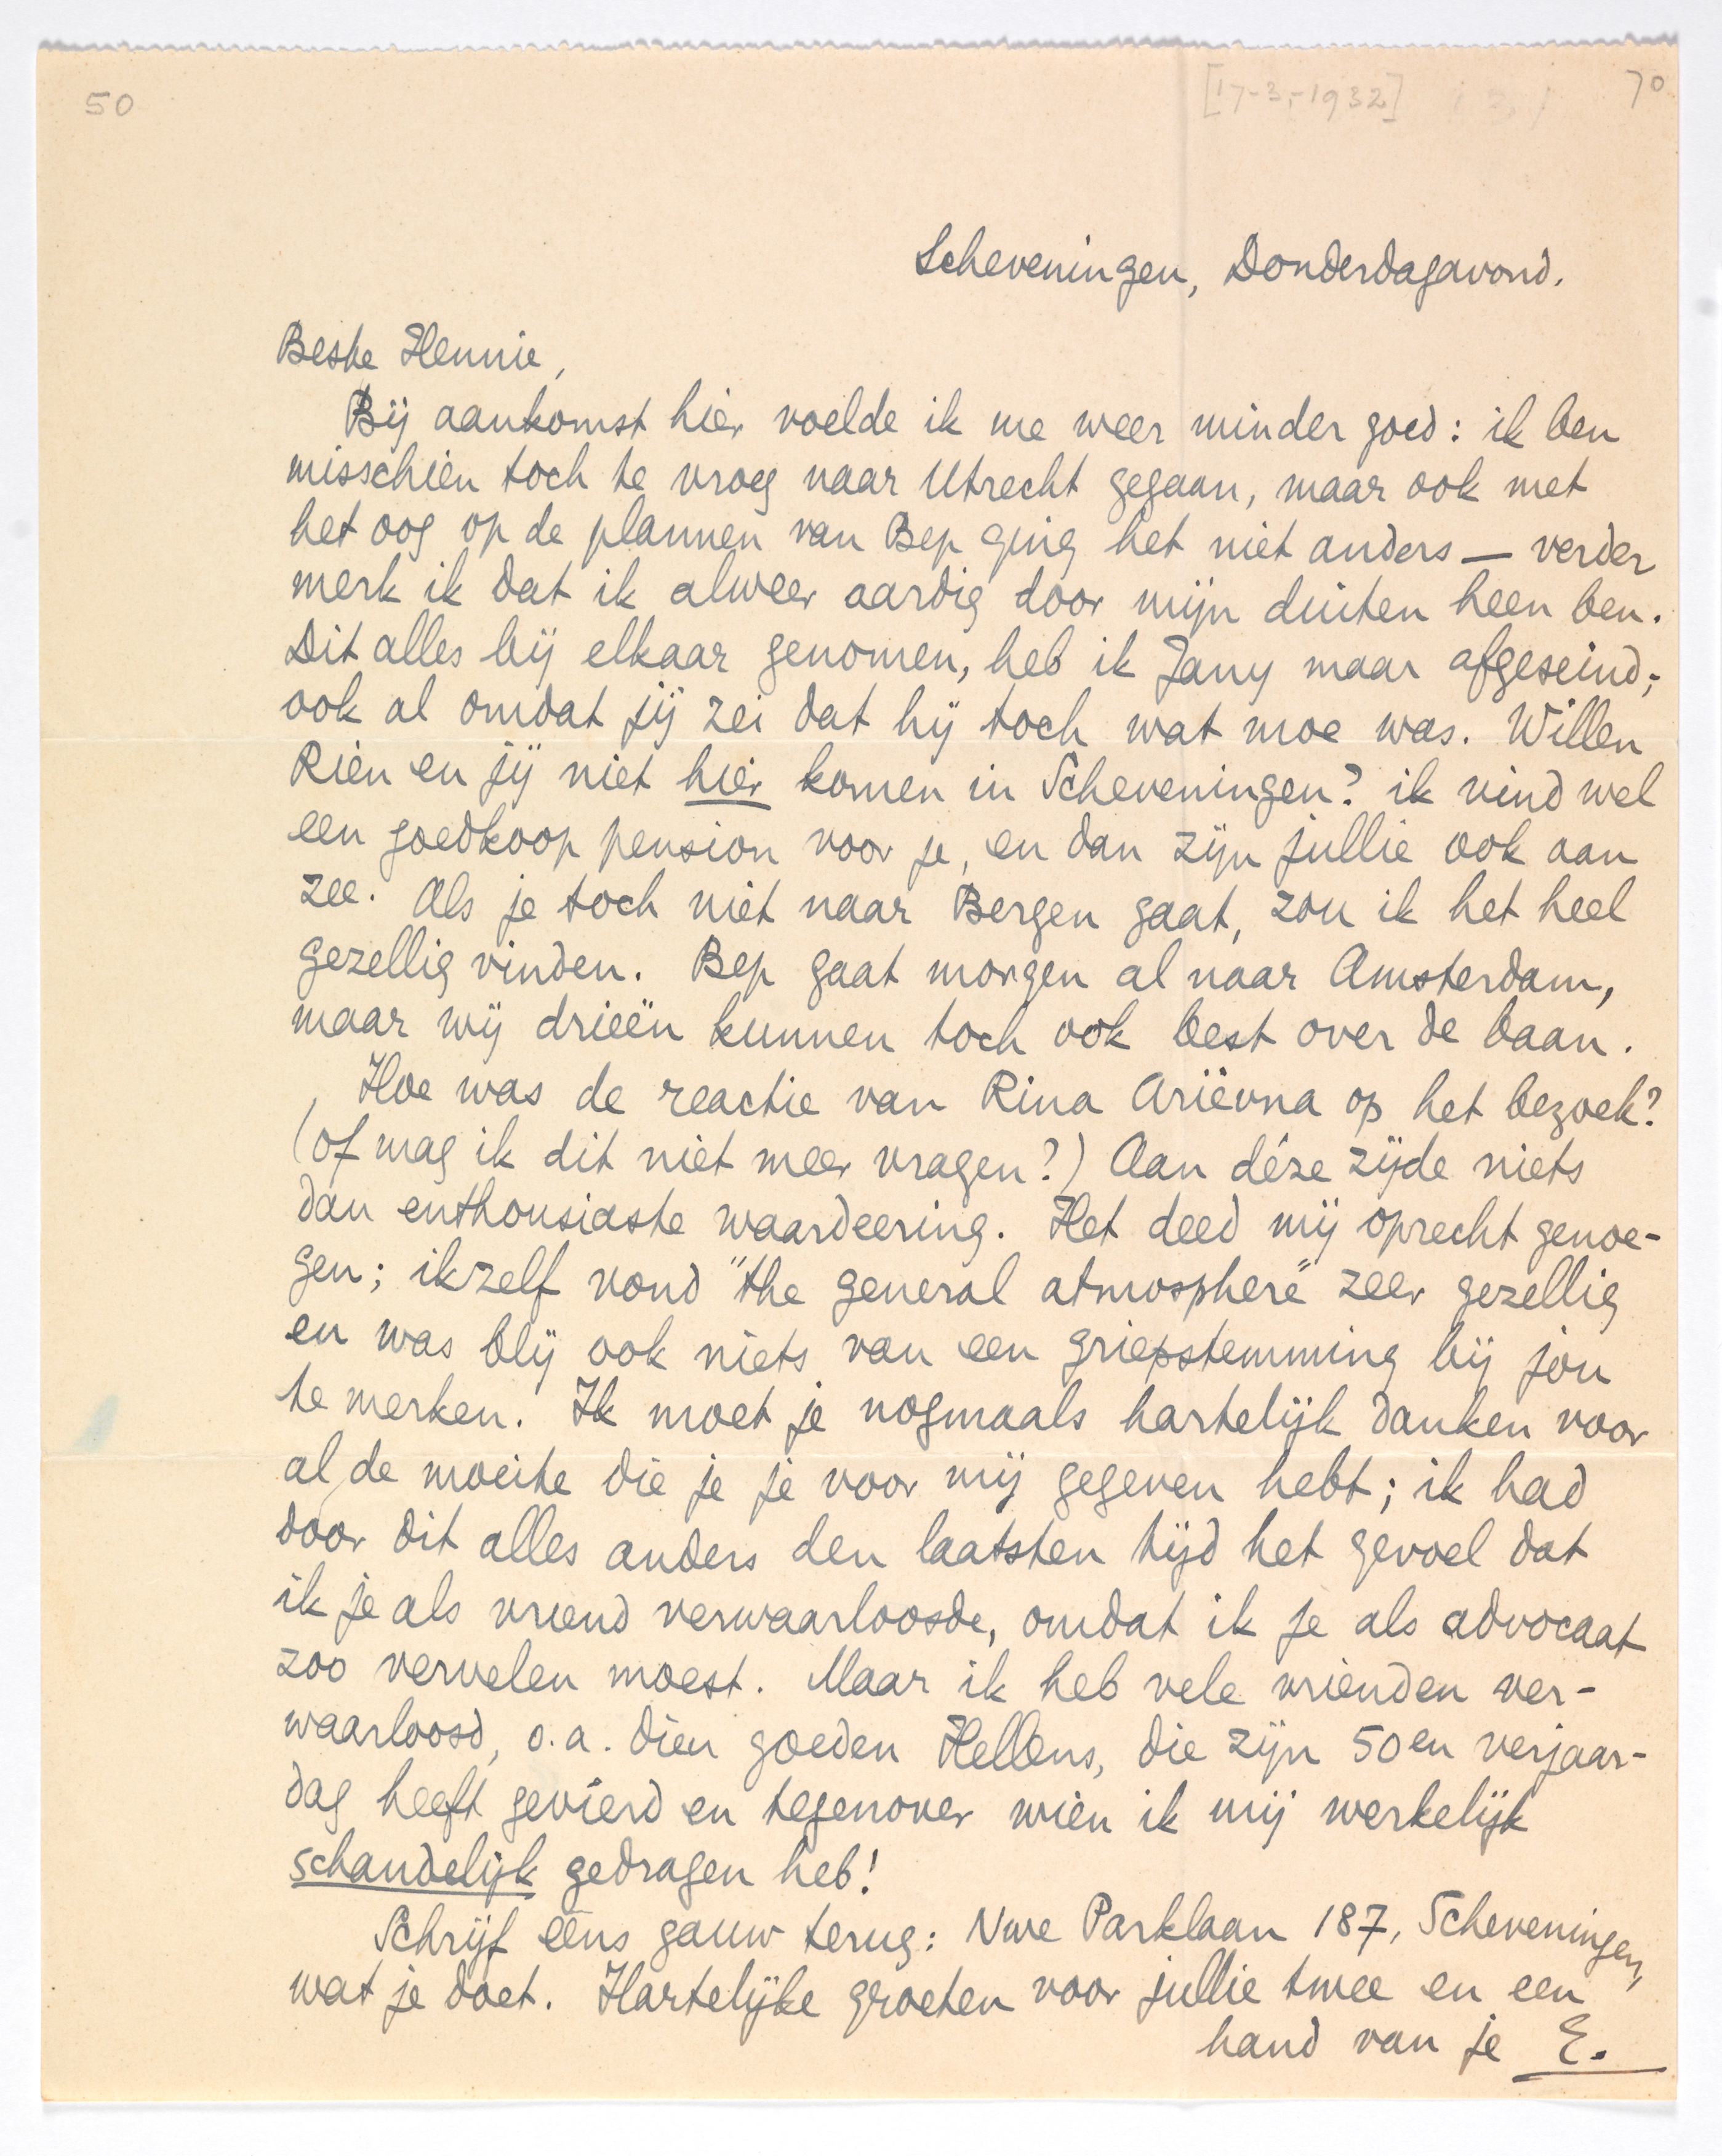 50
[17-3,-1932]
70
Scheveningen, Donderdagavond.
Beste Hennie,
Bij aankomst hier voelde ik me weer minder goed: ik ben
misschien toch te vroeg naar Utrecht gegaan, maar ook met
het oog op de plannen van Bep ging het niet anders — verder
merk ik dat ik alweer aardig door mijn duiten heen ben.
Dit alles bij elkaar genomen, heb ik Jany maar afgeseind;
ook al omdat jij zei dat hij toch wat moe was. Willen
Rien en jij niet hier komen in Scheveningen? ik vind wel
een goedkoop pension voor je, en dan zijn jullie ook aan
zee. Als je toch niet naar Bergen gaat, zou ik het heel
gezellig vinden. Bep gaat morgen al naar Amsterdam,
maar wij drieën kunnen toch ook best over de baan.
Hoe was de reactie van Rina Ariëvna op het bezoek?
(of mag ik dit niet meer vragen?) Aan déze zijde niets
dan enthousiaste waardeering. Het deed mij oprecht genoe-
gen; ikzelf vond "the general atmosphere" zeer gezellig
en was blij ook niets van een griepstemming bij jou
te merken. Ik moet je nogmaals hartelijk danken voor
al de moeite die je je voor mij gegeven hebt; ik had
door dit alles anders den laatsten tijd het gevoel dat
ik je als vriend verwaarloosde, omdat ik je als advocaat
zoo vervelen moest. Maar ik heb vele vrienden ver-
waarloosd, o.a. dien goeden Hellens, die zijn 50en verjaar-
dag heeft gevierd en tegenover wien ik mij werkelijk
schandelijk gedragen heb!
Schrijf eens gauw terug: Nwe Parklaan 187, Scheveningen,
wat je doet. Hartelijke groeten voor jullie twee en een
hand van je E.